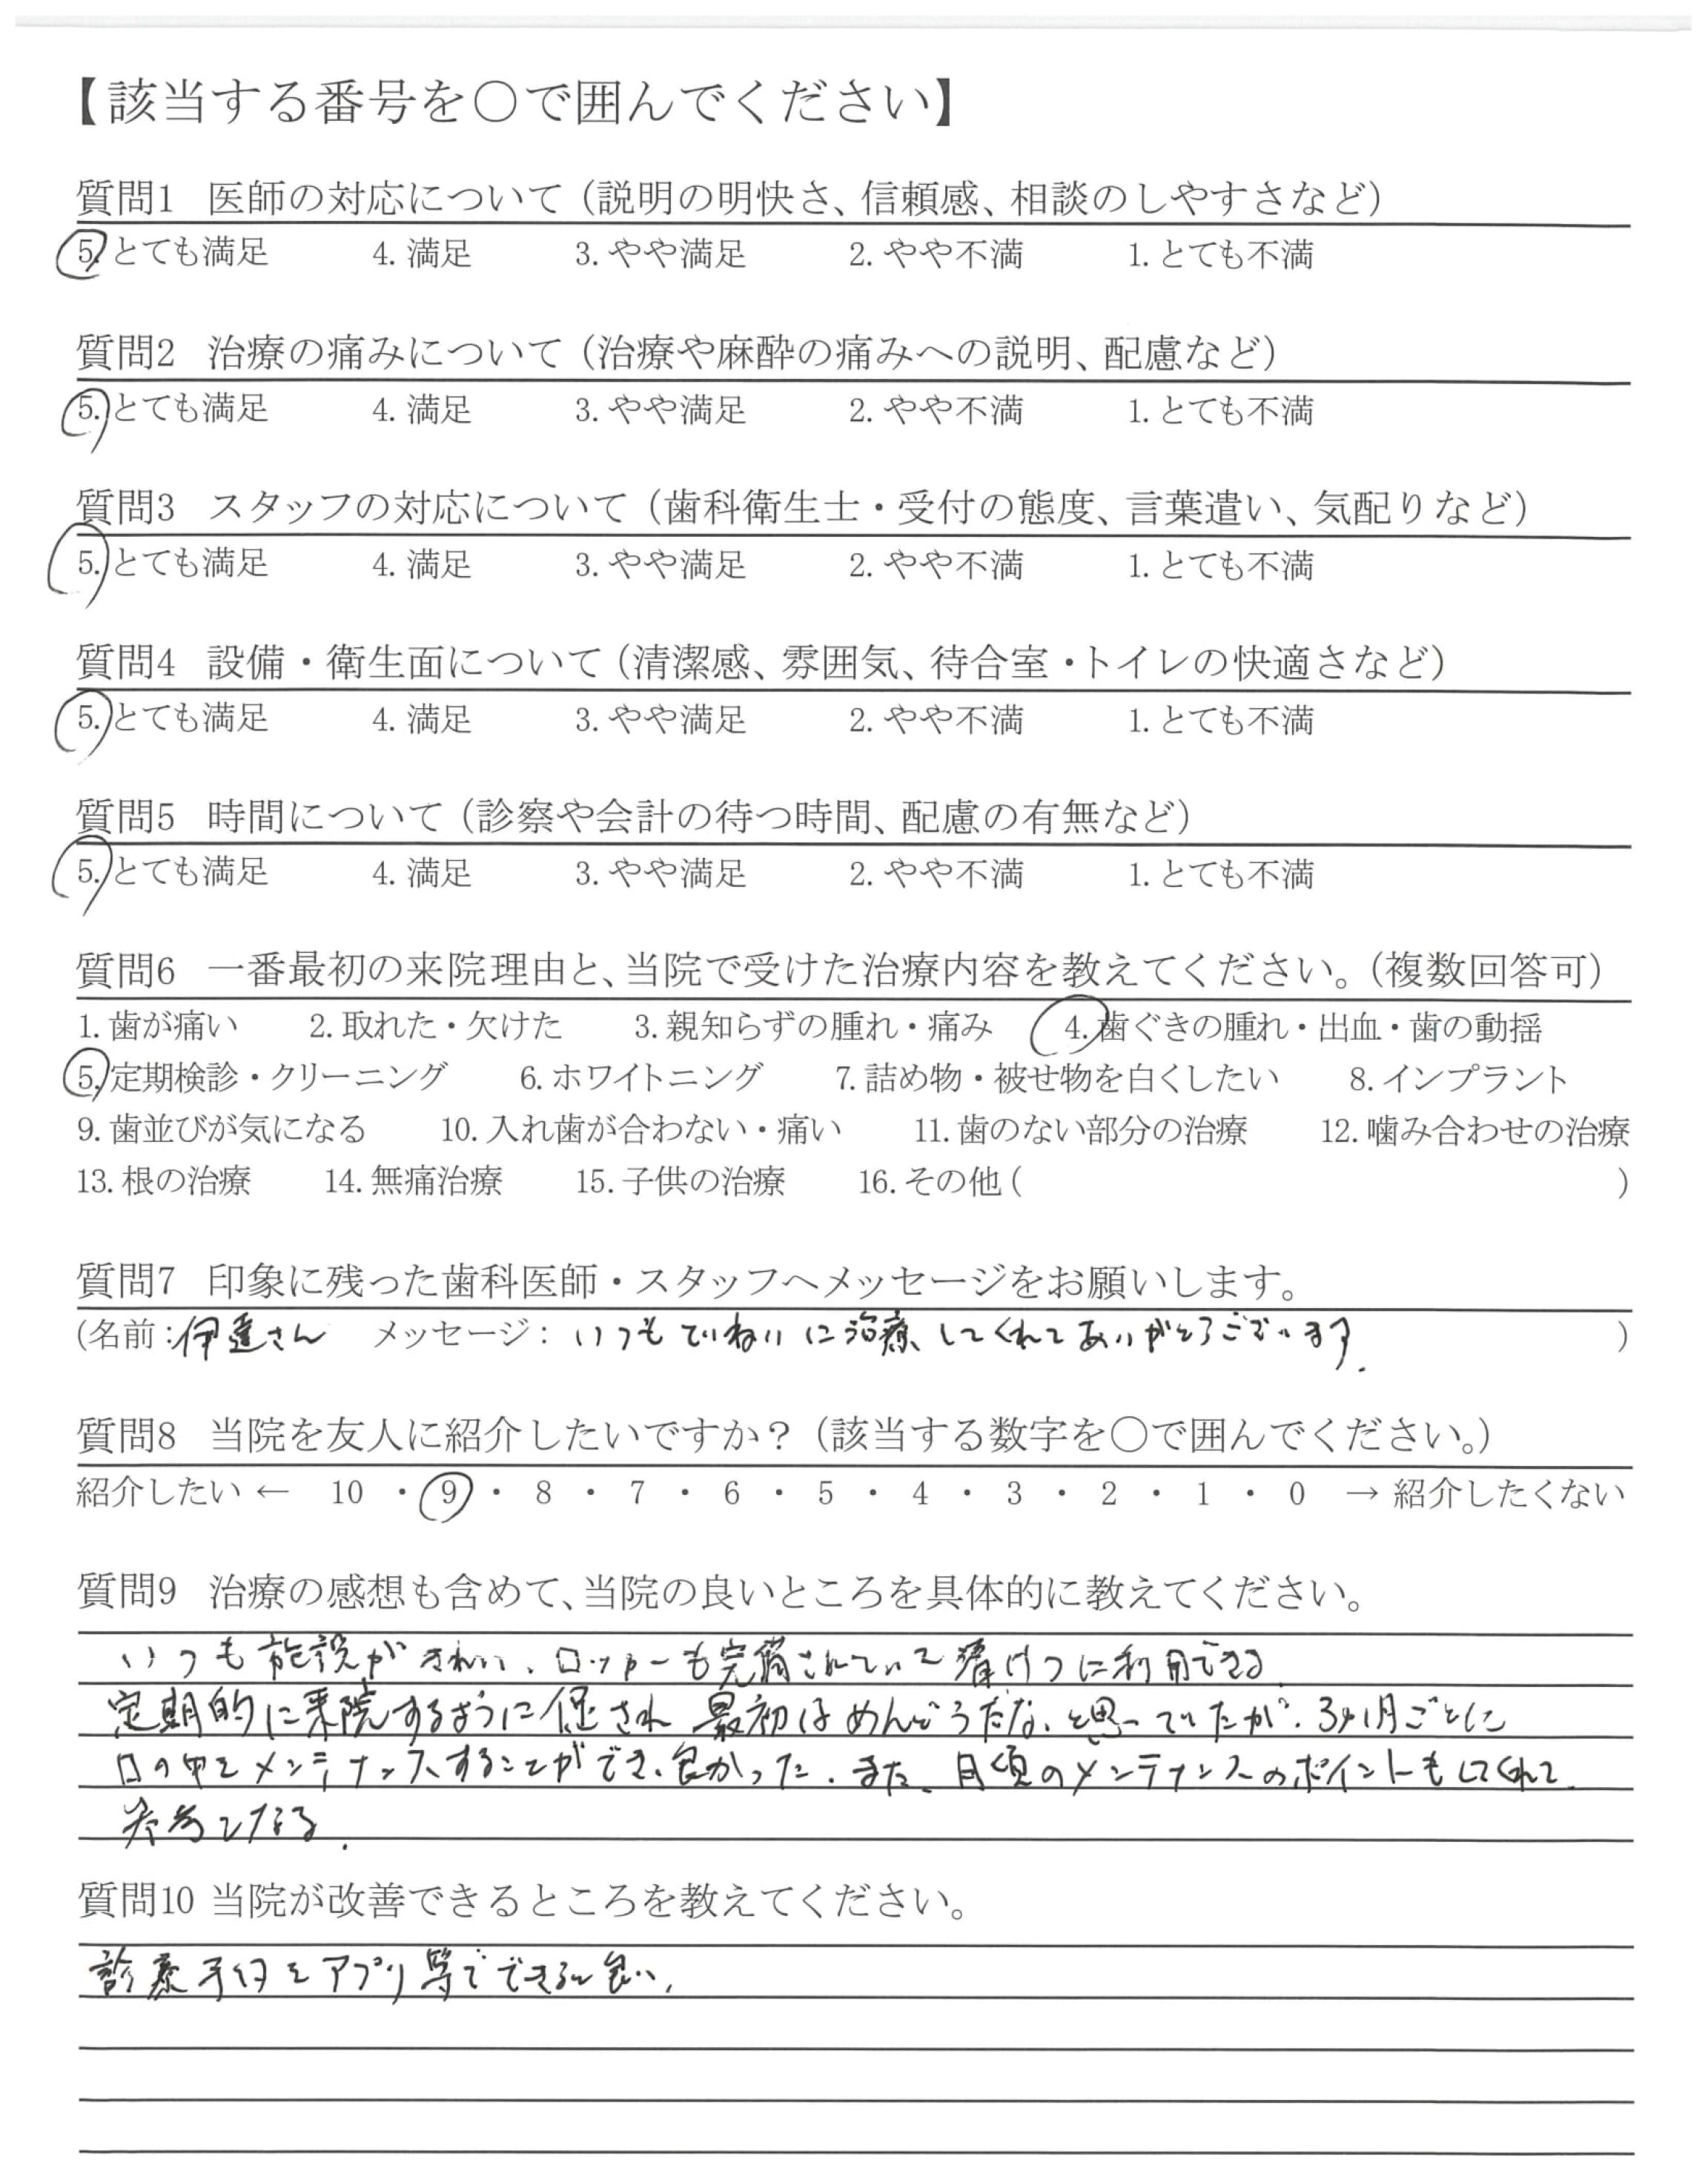 【該当する番号を〇で囲んでください】
質問1 医師の対応について（説明の明快さ、信頼感、相談のしやすさなど）
5. とても満足 4. 満足 3. やや満足 2. やや不満 1. とても不満
質問2 治療の痛みについて（治療や麻酔の痛みへの説明、配慮など）
5. とても満足 4. 満足 3. やや満足 2. やや不満 1. とても不満
質問3 スタッフの対応について（歯科衛生士・受付の態度、言葉遣い、気配りなど）
5. とても満足 4. 満足 3. やや満足 2. やや不満 1. とても不満
質問4 設備・衛生面について（清潔感、雰囲気、待合室・トイレの快適さなど）
5. とても満足 4. 満足 3. やや満足 2. やや不満 1. とても不満
質問5 時間について（診察や会計の待つ時間、配慮の有無など）
5. とても満足 4. 満足 3. やや満足 2. やや不満 1. とても不満
質問6 一番最初の来院理由と、当院で受けた治療内容を教えてください。（複数回答可）
1. 歯が痛い 2. 取れた・欠けた 3. 親知らずの腫れ・痛み 4. 歯ぐきの腫れ・出血・歯の動揺
5. 定期検診・クリーニング 6. ホワイトニング 7. 詰め物・被せ物を白くしたい 8. インプラント
9. 歯並びが気になる 10. 入れ歯が合わない・痛い 11. 歯のない部分の治療 12. 噛み合わせの治療
13. 根の治療 14. 無痛治療 15. 子供の治療 16. その他（ ）
質問7 印象に残った歯科医師・スタッフへメッセージをお願いします。
（名前：伊達さん メッセージ：いつもていねいに治療してくれてありがとうございます. ）
質問8 当院を友人に紹介したいですか？（該当する数字を〇で囲んでください。）
紹介したい ← 10 ・ 9 ・ 8 ・ 7 ・ 6 ・ 5 ・ 4 ・ 3 ・ 2 ・ 1 ・ 0 → 紹介したくない
質問9 治療の感想も含めて、当院の良いところを具体的に教えてください。
いつも施設がきれい、ロッカーも完備されていて に利用できる
定期的に来院するように促され 最初はめんどうだな、と思っていたが、3ヶ月ごとに
口の中をメンテナンスすることができ、良かった. また、日頃のメンテナンスのポイントもしてくれて
参考になる.
質問10 当院が改善できるところを教えてください。
診察予約をアプリ等でできると良い.